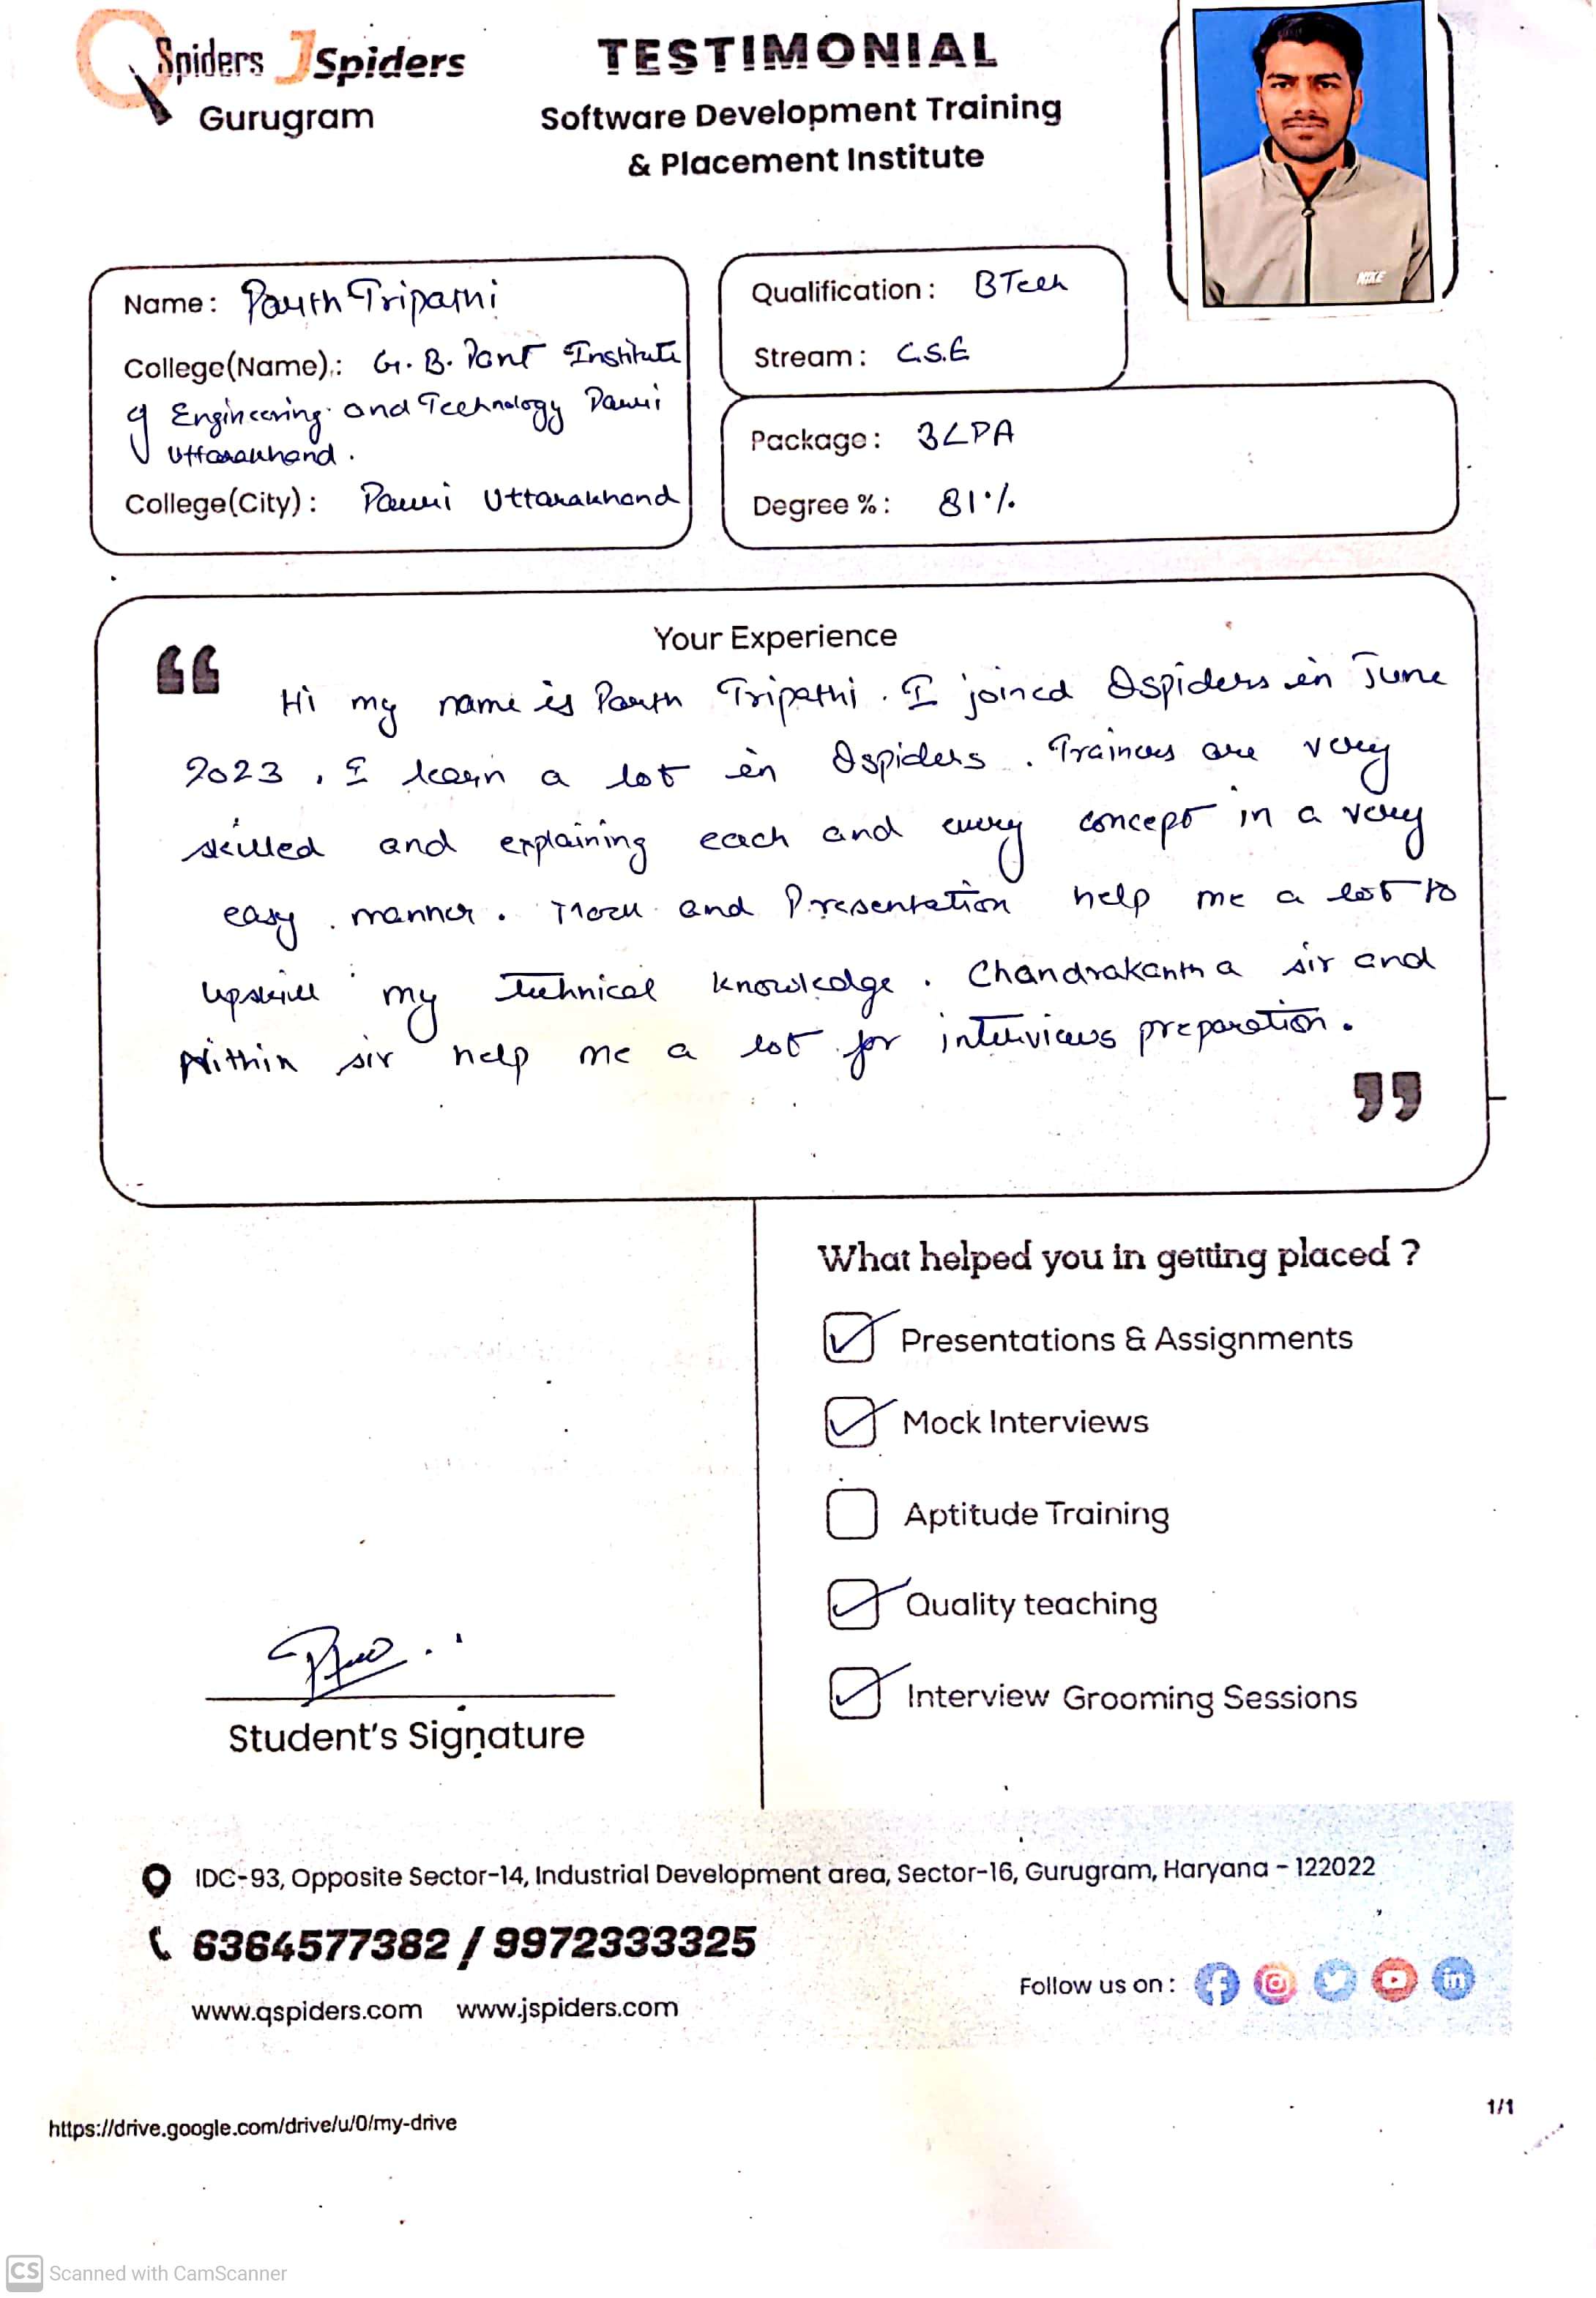 QSpiders JSpiders
Gurugram
TESTIMONIAL
Software Development Training
& Placement Institute
NIKE
Name: Parth Tripathi
College(Name): G. B. Pant Institute
of Engineering and Technology Pauri
Uttarakhand.
College(City): Pauri Uttarakhand
Qualification: BTech
Stream: C.S.E
Package: 3LPA
Degree %: 81%
Your Experience
Hi my name is Parth Tripathi. I joined Qspiders in June
2023, I learn a lot in Qspiders. Trainers are very
skilled and explaining each and every concept in a very
easy manner. Mock and Presentation help me a lot to
upskill my technical knowledge. Chandrakantha sir and
Nithin sir help me a lot for interviews preparation.
What helped you in getting placed ?
Presentations & Assignments
Mock Interviews
Aptitude Training
Quality teaching
Interview Grooming Sessions
Student's Signature
IDC-93, Opposite Sector-14, Industrial Development area, Sector-16, Gurugram, Haryana - 122022
6364577382 / 9972333325
www.qspiders.com www.jspiders.com
Follow us on :
https://drive.google.com/drive/u/0/my-drive
1/1
CS Scanned with CamScanner